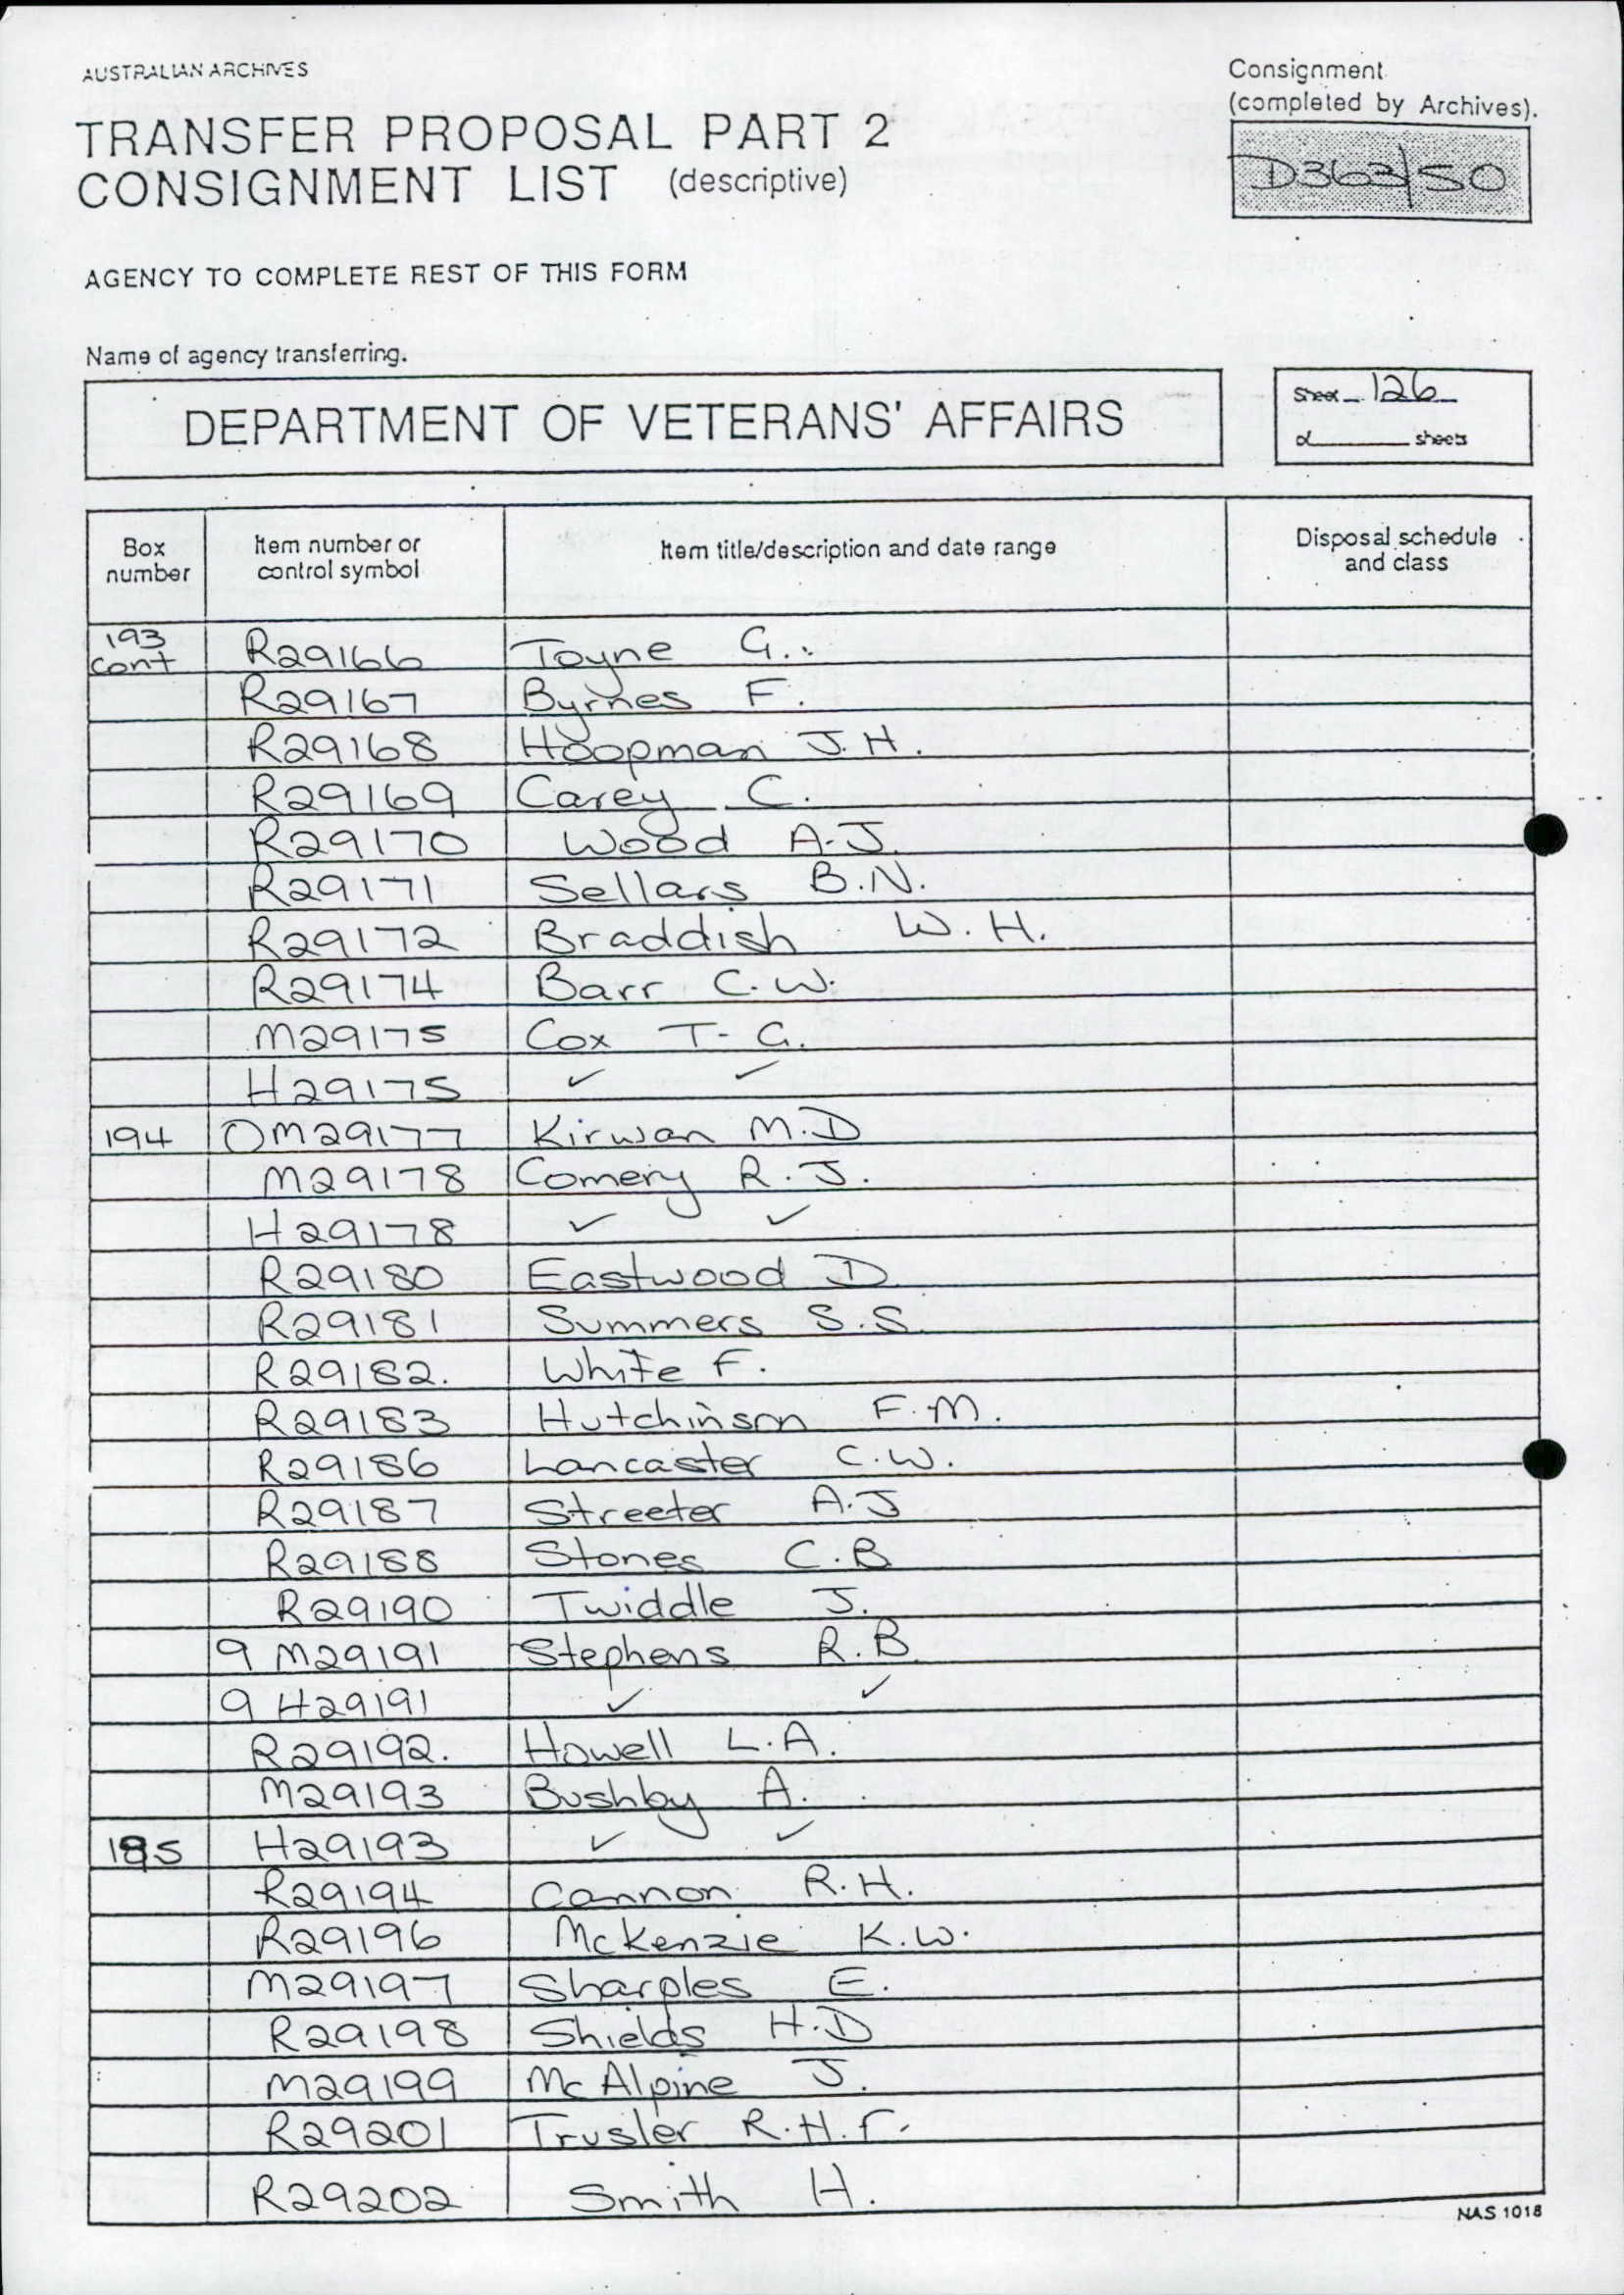 AUSTRALIAN ARCHIVES
Consignment
(completed by Archives).
TRANSFER PROPOSAL PART 2
CONSIGNMENT LIST (descriptive)
D363/50
AGENCY TO COMPLETE REST OF THIS FORM
Name of agency transferring.
DEPARTMENT OF VETERANS' AFFAIRS
Sheet 126
of sheets
Box number Item number or control symbol Item title/description and date range Disposal schedule and class
193 cont R29166 Toyne G.
R29167 Byrnes F.
R29168 Hoopman J.H.
R29169 Carey C.
R29170 Wood A.J.
R29171 Sellars B.N.
R29172 Braddish W.H.
R29174 Barr C.W.
M29175 Cox T-G.
H29175 ✓ ✓
194 OM29177 Kirwan M.D
M29178 Comery R.J.
H29178 ✓ ✓
R29180 Eastwood D
R29181 Summers S.S.
R29182. White F.
R29183 Hutchinson F.M.
R29186 Lancaster C.W.
R29187 Streeter A.J
R29188 Stones C.B
R29190 Twiddle J.
9 M29191 Stephens R.B
9 H29191 ✓ ✓
R29192. Howell L.A.
M29193 Bushby A.
195 H29193 ✓ ✓
R29194 Cannon R.H.
R29196 McKenzie K.W.
M29197 Sharples E.
R29198 Shields H.D
M29199 McAlpine J.
R29201 Trusler R.H.F.
R29202 Smith H.
NAS 1018